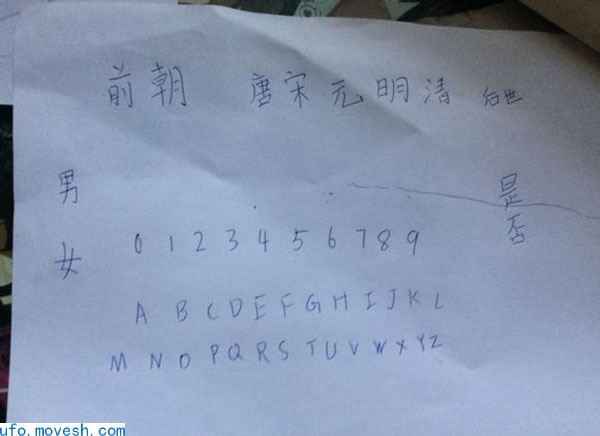 前朝 唐宋元明清 后世
男 是
女 否
0 1 2 3 4 5 6 7 8 9
A B C D E F G H I J K L
M N O P Q R S T U V W X Y Z
ufo.movesh.com